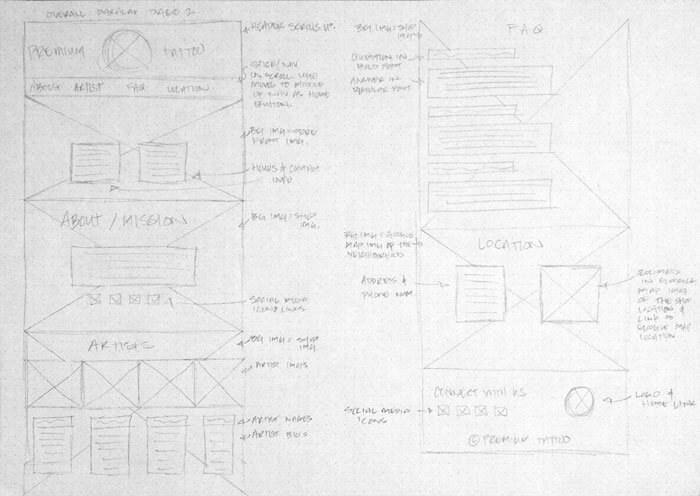 OVERALL
PREMIUM TATTOO
ABOUT ARTIST FAQ LOCATION
HEADER SCROLLS UP.
STICK/NAV
ON SCROLL LOGO
MOVES TO MIDDLE
OF NAV AS HOME
BUTTON.
BG IMG = STORE
FRONT IMG.
HOURS & CONTACT
INFO
ABOUT / MISSION
BG IMG = SHOP
IMG.
SOCIAL MEDIA
ICONS & LINKS
ARTISTS
BG IMG = SHOP
IMG
ARTIST IMGS
ARTIST NAMES
ARTIST BIOS
FAQ
BG IMG = SHOP
IMG
QUESTION IN
BOLD FONT
ANSWER IN
REGULAR FONT
LOCATION
BG IMG = GOOGLE
MAP IMG OF THE
NEIGHBORHOOD
ADDRESS &
PHONE NUM
IN GOOGLE
MAP IMG
OF THE
LOCATION &
LINK TO
GOOGLE MAP
LOCATION
CONNECT WITH US
SOCIAL MEDIA
ICONS
LOGO &
HOME LINK
© PREMIUM TATTOO